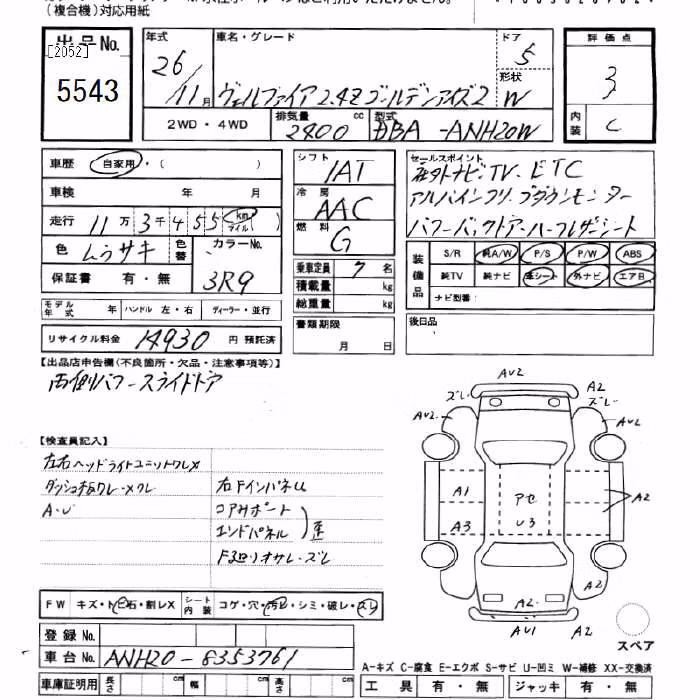 (複合機)対応用紙
出品No.
[2052]
5543
年式
26/11月
車名・グレード
ヴェルファイア2.4Zゴールデンアイズ2
ドア
5
形状
W
評価点
3
内装
C
2WD・4WD
排気量
2400
cc
型式
DBA-ANH20W
車歴
自家用・( )
車検 年 月
走行 11万3千455km マイル( )
色 ムラサキ
色替
カラーNo.
3R9
保証書 有・無
モデル年式 年
ハンドル 左・右
ディーラー・並行
リサイクル料金 14930 円 預託済
シフト
IAT
冷房
AAC
燃料
G
乗車定員 7 名
積載量 kg
総重量 kg
書類期限
月 日
セールスポイント
社外ナビ・TV・ETC
アルパインフリップダウンモニター
パワーバックドア・ハーフレザーシート
装備品
S/R 純A/W P/S P/W ABS
純TV 純ナビ 革シート 外ナビ エアB
ナビ型番:
後日品
【出品店申告欄(不良箇所・欠品・注意事項等)】
両側パワースライドドア
【検査員記入】
左右ヘッドライトユニットワレX
ダッシュ板ワレ・メクレ
A・U
右Fインパネル
コアサポート
エンドパネル
F廻りオサレ・ズレ
AU2
ズレ
AU2
A2
ズレ
AU2
A1
A3
アセ
U3
A2
A2
A2
AU1
A2
スペア
FW キズ・トビ石・割レX
シート内装 コゲ・穴・汚レ・シミ・破レ・スレ
登録No.
車台No. ANH20-8353761
車庫証明用 長さ 幅 高さ
A-キズ C-腐食 E-エクボ S-サビ U-凹ミ W-補修 XX-交換済
工具 有・無 ジャッキ 有・無